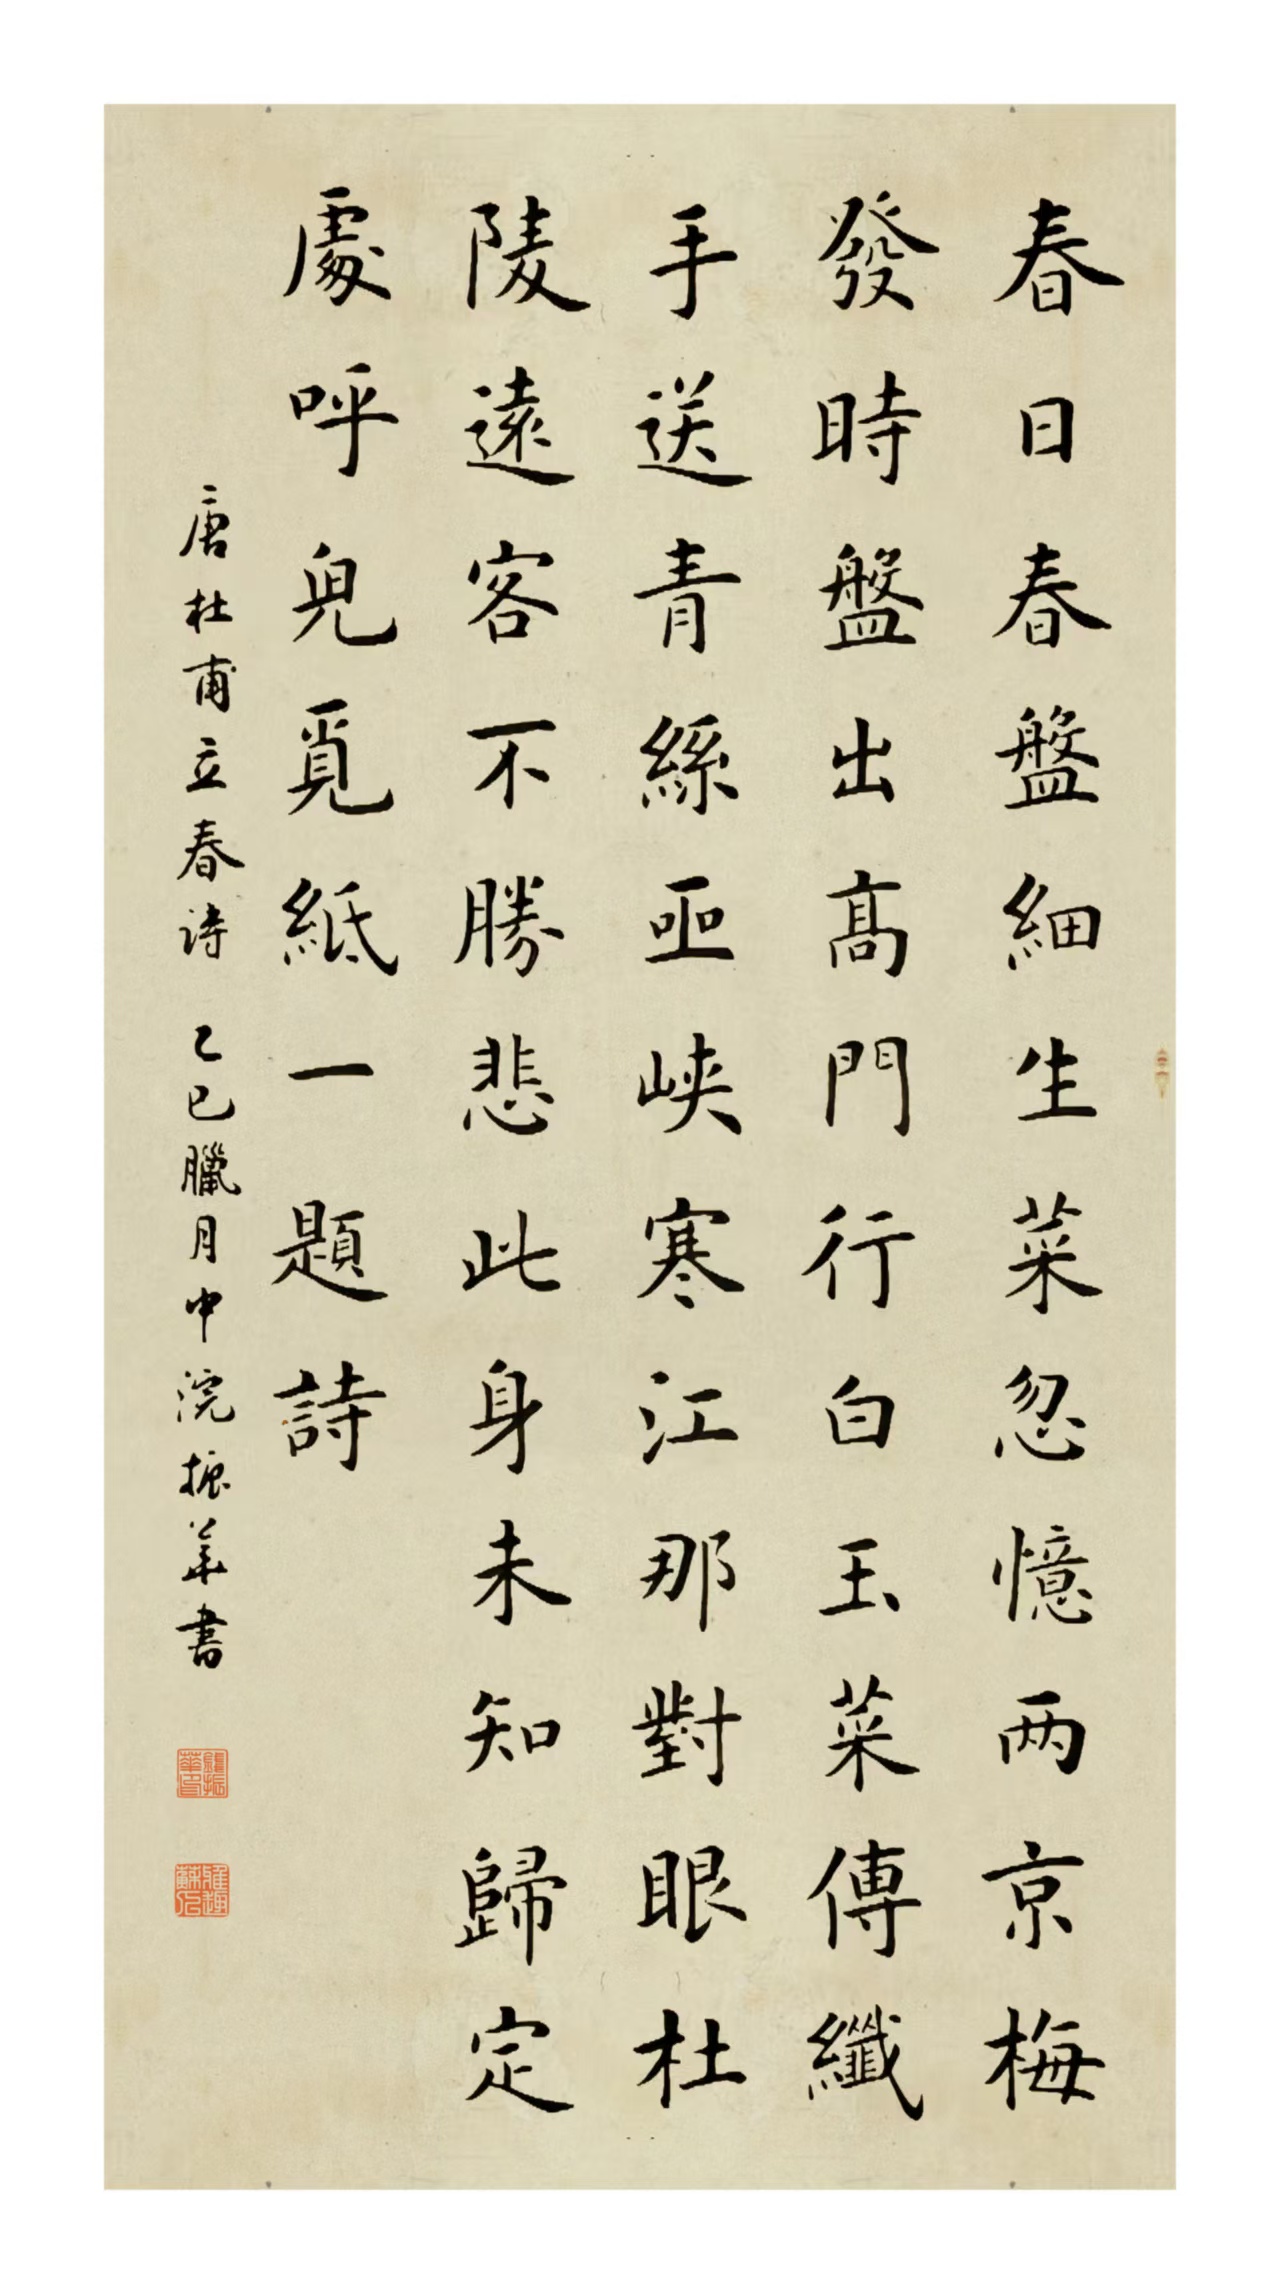 春日春盤細生菜忽憶两京梅
發時盤出高門行白玉菜傳纖
手送青絲亟峡寒江那對眼杜
陵遠客不勝悲此身未知歸定
處呼兒覓紙一題詩
唐杜甫立春诗 乙巳臘月中浣振華书